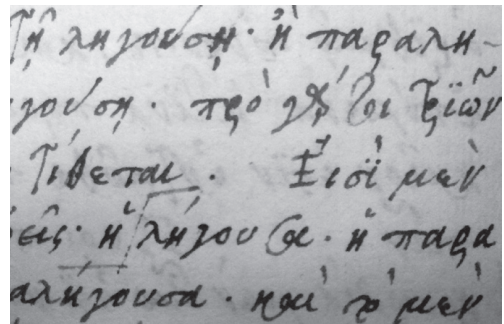 τῇ ληγούσῃ· ἢ παραλη-
γούσῃ· πρὸ τριῶν
τίθεται. Εἰσὶ μὲν
εῖς· ἡ λήγουσα· ἡ παρα
αλήγουσα· καὶ τὸ μὲν